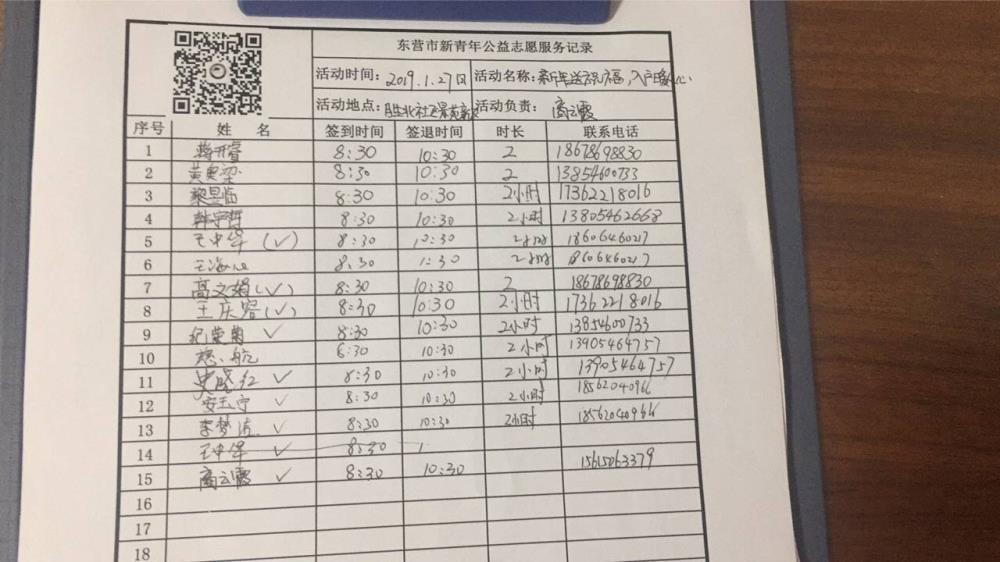 东营市新青年公益志愿服务记录
活动时间：2019.1.27日 活动名称：新年送祝福，入户暖心
活动地点：胜北社区景苑 活动负责：商云霞
序号 姓名 签到时间 签退时间 时长 联系电话
1 蒋开睿 8:30 10:30 2 18678698830
2 黄奥梁 8:30 10:30 2 13854600733
3 黎昱临 8:30 10:30 2小时 17362218016
4 韩宇哲 8:30 10:30 2小时 13805462668
5 王中华（✓） 8:30 10:30 2小时 18606460217
6 王海心 8:30 1:30 2小时 18606460217
7 高文娟（✓） 8:30 10:30 2 18678698830
8 王庆容（✓） 8:30 10:30 2小时 17362218016
9 纪荣菊 ✓ 8:30 10:30 2小时 13854600733
10 航 8:30 10:30 2小时 13905464757
11 史晓红 ✓ 8:30 10:30 2小时 13905464757
12 安玉宁 ✓ 8:30 10:30 2小时 18562040966
13 李梦洁 ✓ 8:30 10:30 2小时 18562040966
14 王中华 ✓ 8:30
15 商云霞 ✓ 8:30 10:30 15615063379
16
17
18